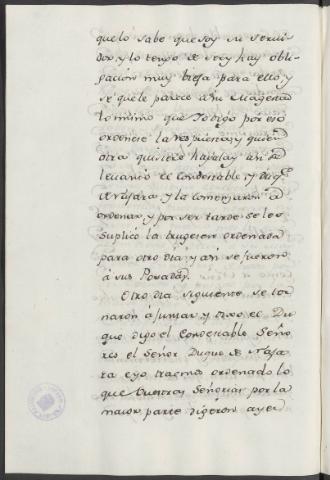 quelo sabe que soy su servi-
dor, y lo tengo de ser, y hay obli-
gacion muy vieja para ello, y
se que le parece a su Magestad
lo mismo que Yo digo por eso
ordenese la respuesta, y quien
otra quisiere hagala, y asi se
levantó el Condestable, y Duq.e
de Naxara, y la comenzaron á
ordenar, y por ser tarde se les
suplicó la trugesen ordenada
para otro dia, y asi se fueron
á sus Posadas.
Otro dia siguiente se tor
naron á juntar, y dixo el Du
que digo el Condestable Seño
res el Señor Duque de Naxa
ra e yo traemos ordenado lo
que Vuestras Señorias por la
maior parte digeron ayer